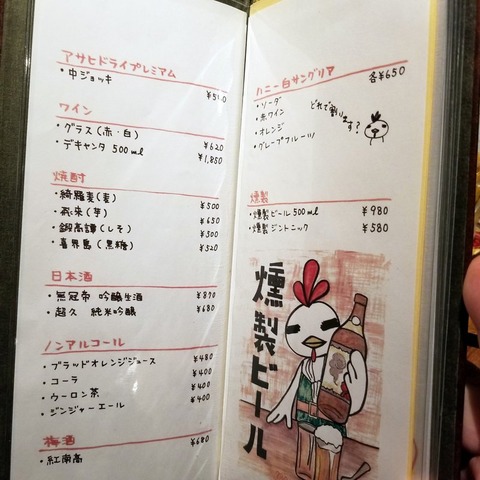 アサヒドライプレミアム
・中ジョッキ ¥510
ワイン
・グラス(赤・白) ¥620
・デキャンタ 500ml ¥1,850
焼酎
・綺羅麦(麦) ¥500
(芋) ¥650
・鍛高譚(しそ) ¥500
・喜界島(黒糖) ¥520
日本酒
・無冠帝 吟醸生酒 ¥870
・超久 純米吟醸 ¥680
ノンアルコール
・ブラッドオレンジジュース ¥480
・コーラ ¥400
・ウーロン茶 ¥400
・ジンジャーエール ¥400
梅酒 ¥680
・紅南高
ハニー白サングリア 各¥650
・ソーダ
・赤ワイン
・オレンジ
・グレープフルーツ
どれで割ります?
燻製
・燻製ビール 500ml ¥980
・燻製ジントニック ¥580
燻製ビール